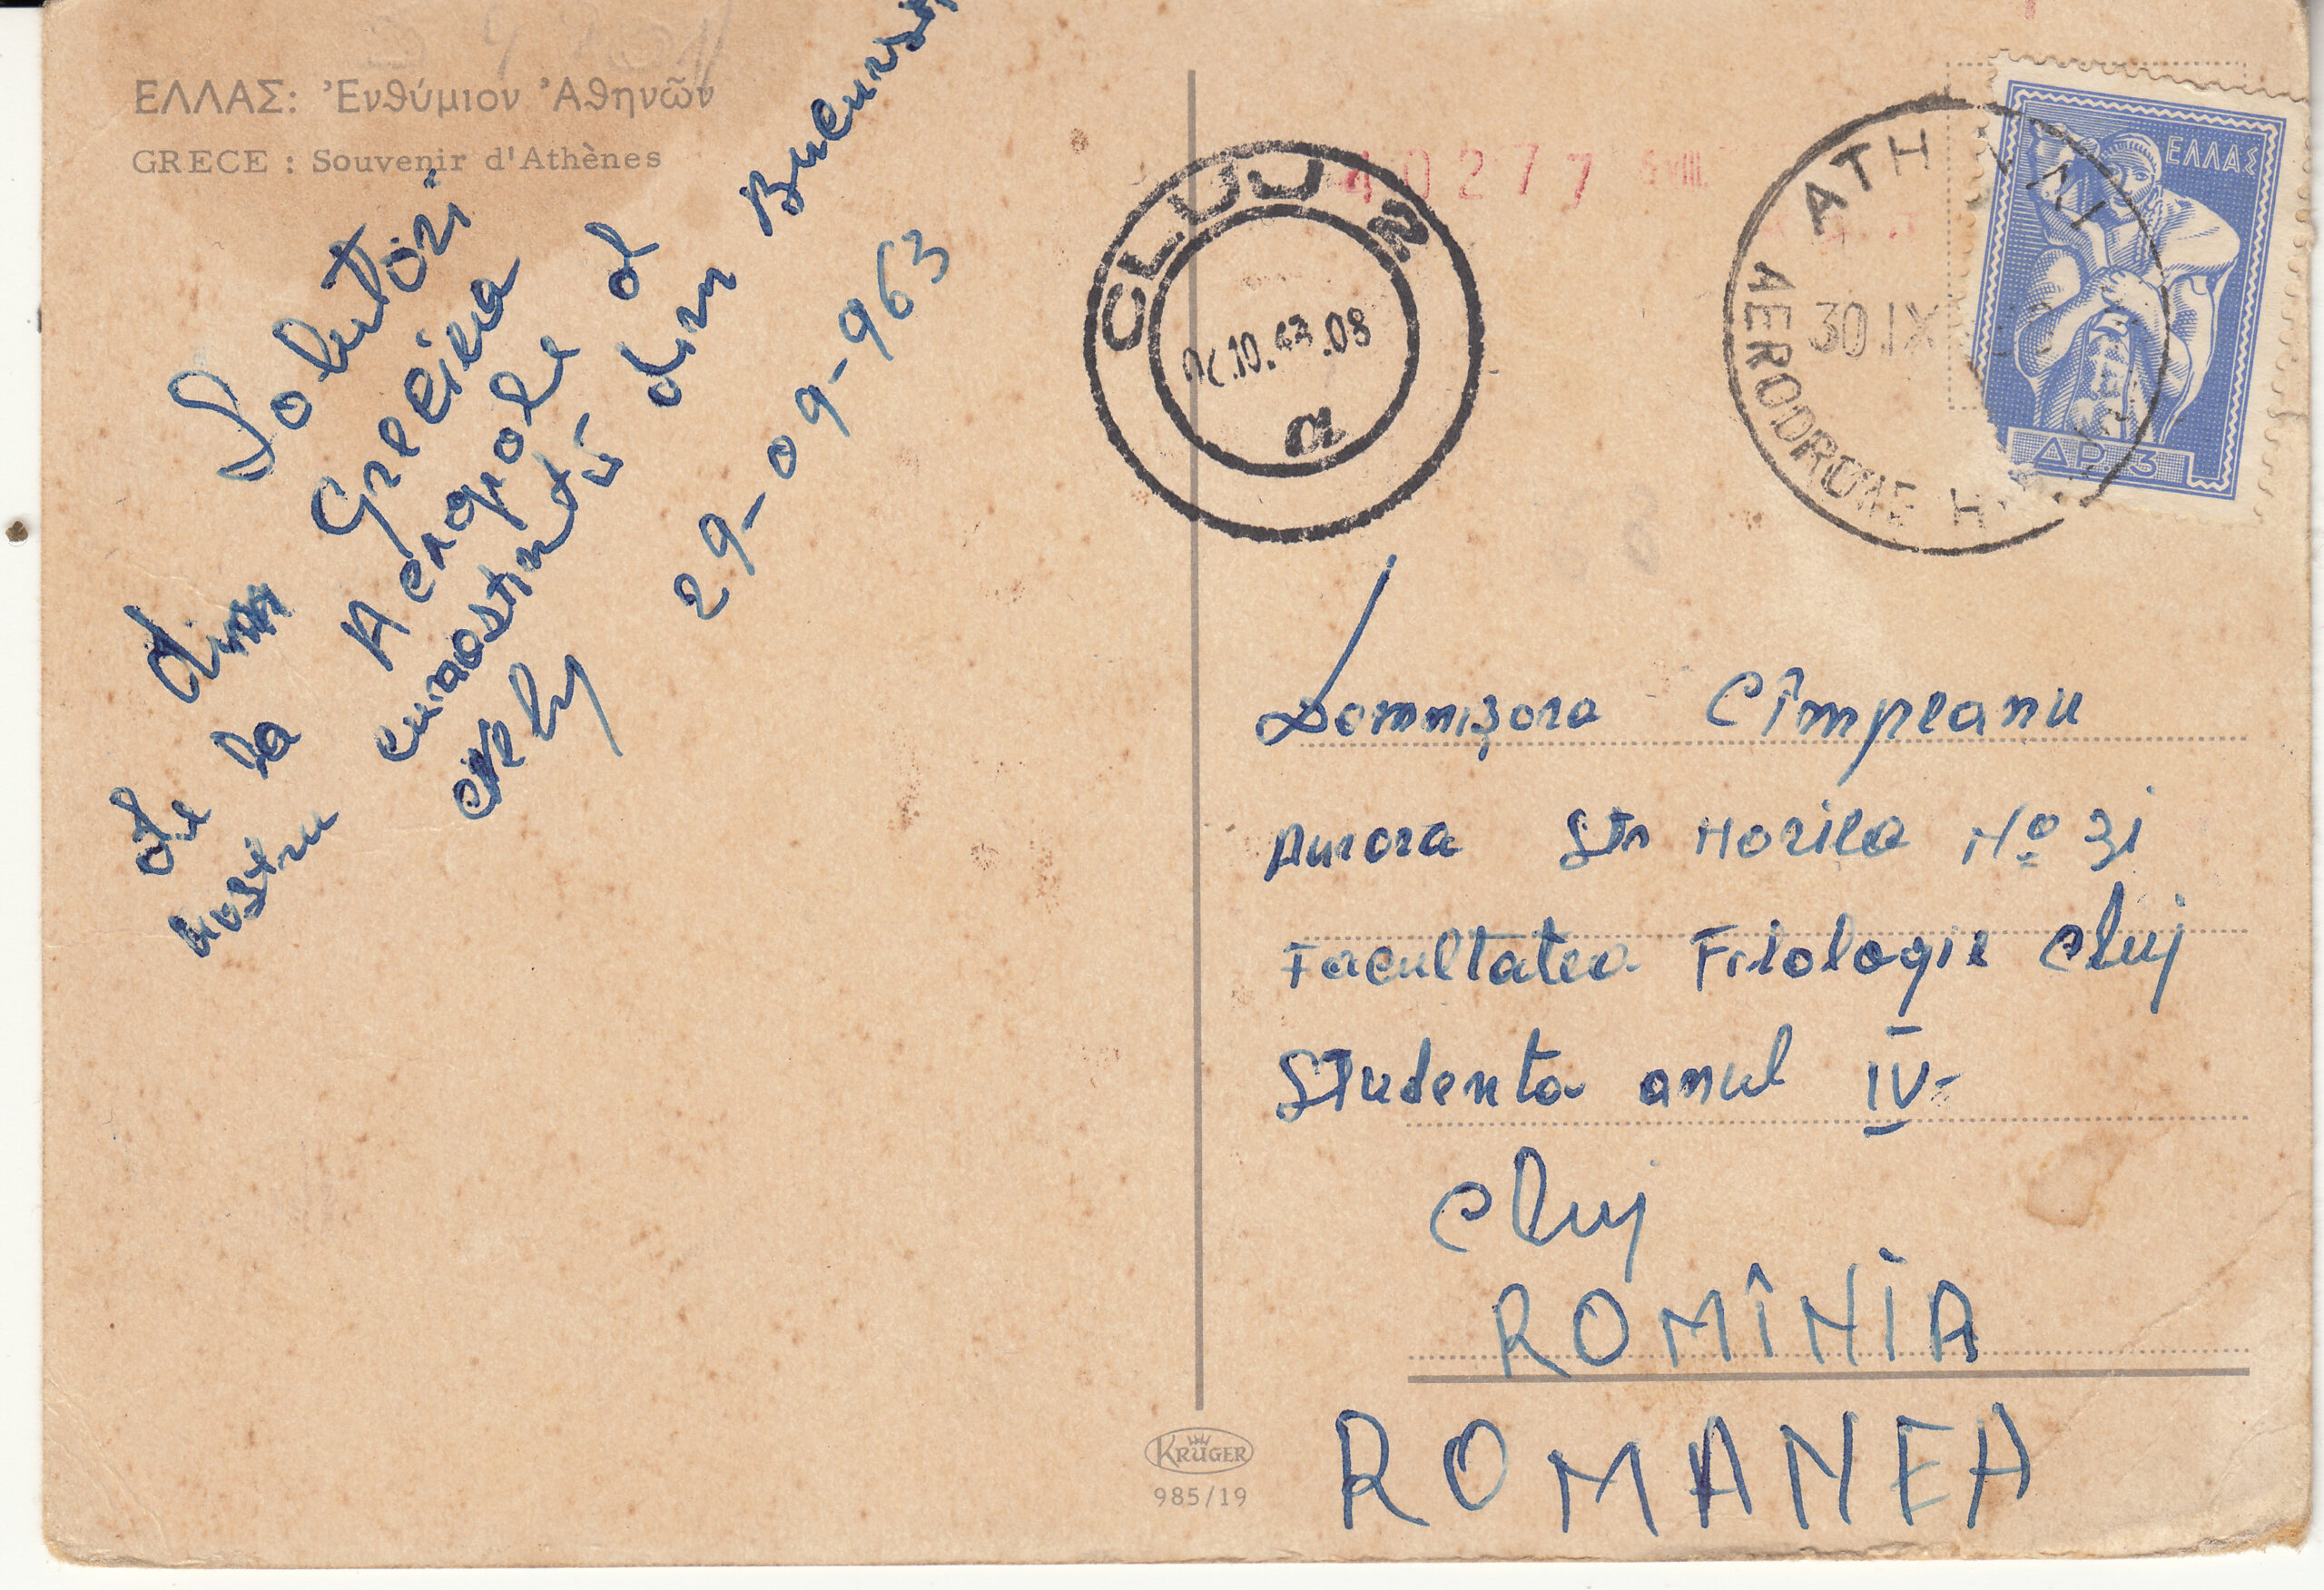 ΕΛΛΑΣ: Ἐνθύμιον Ἀθηνῶν
GRECE : Souvenir d'Athènes
Salutări
din Grecia
de la Acropole al
nostru cunoștință din
Cluj
29-09-963
CLUJ 2
.10.63.08
a
40277
VIII.
ATHINAI
AERODROME H.
30 IX
ΕΛΛΑΣ
ΔΡ. 3
Domnișora Cîmpeanu
Aurora Str Horica Nº 31
Facultatea Filologie Cluj
Studenta anul IV-
Cluj
ROMÎNIA
ROMANEA
KRÜGER
985/19